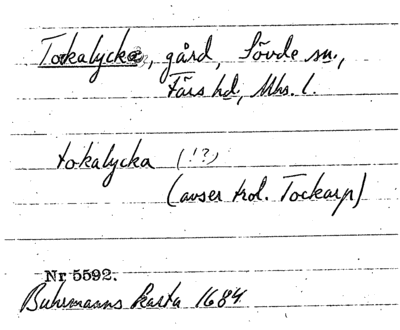 Tockalycke, gård, Sövde sn.,
Färs hd, Mhs. l.
tokalycka (!?)
(avser trol. Tockarp)
Nr 5592.
Buhrmanns karta 1684